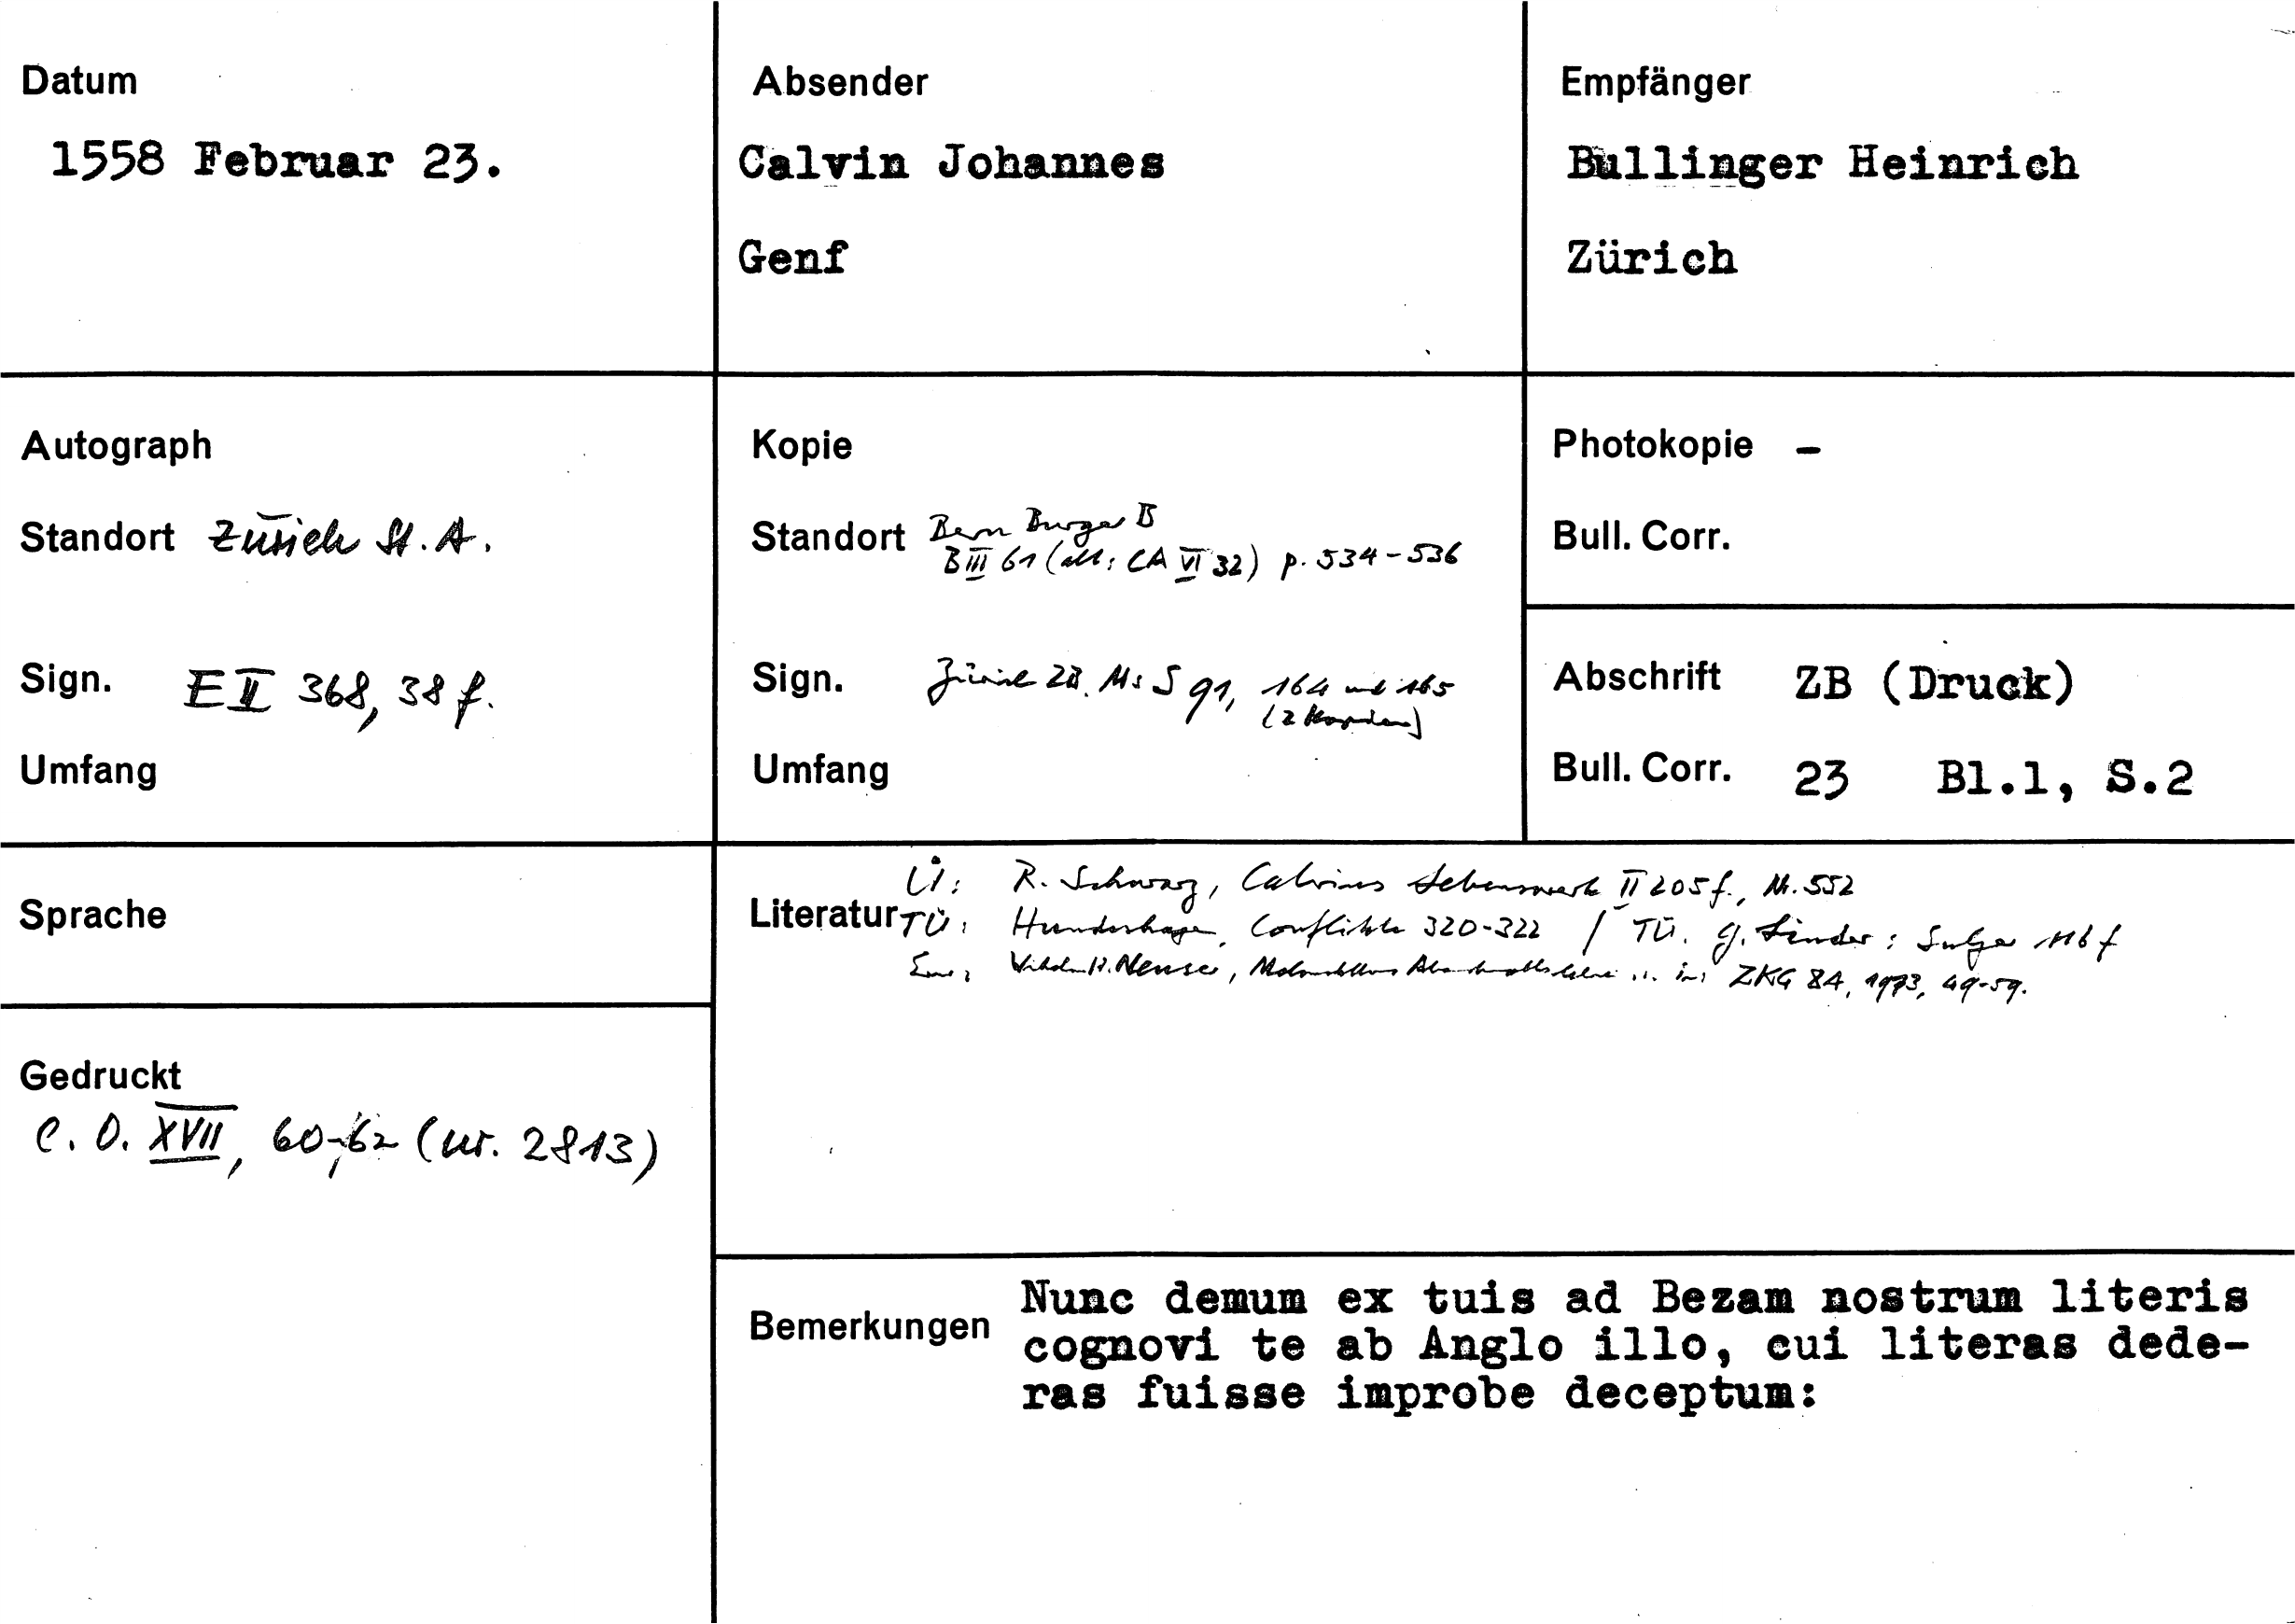 Datum
1558 Februar 23.
Absender
Calvin Johannes
Genf
Empfänger
Bullinger Heinrich
Zürich
Autograph
Standort Zürich St. A.
Sign. E II 368, 38 f.
Umfang
Kopie
Standort Bern Burger B
B III 61 (alt: CA VI 32) p. 534-536
Sign. Zürich ZB. Ms S 91, 164 und 165
(2 Kopien)
Umfang
Photokopie –
Bull. Corr.
Abschrift ZB (Druck)
Bull. Corr. 23 Bl.1, S.2
Sprache
Gedruckt
C. O. XVII, 60-62 (nr. 2813)
Ü: R. Schwarz, Calvins Lebenswerk II 205 f., Nr. 552
Literatur TÜ: Hundeshagen, Conflikte 320-322 / TÜ. G. Linder: Sulzer 116 f
Wilhelm H. Neuser, Melanchthons Abendmahlslehre ... in: ZKG 84, 1973, 49-59.
Bemerkungen
Nunc demum ex tuis ad Bezam nostrum literis
cognovi te ab Anglo illo, cui literas dede-
ras fuisse improbe deceptum: